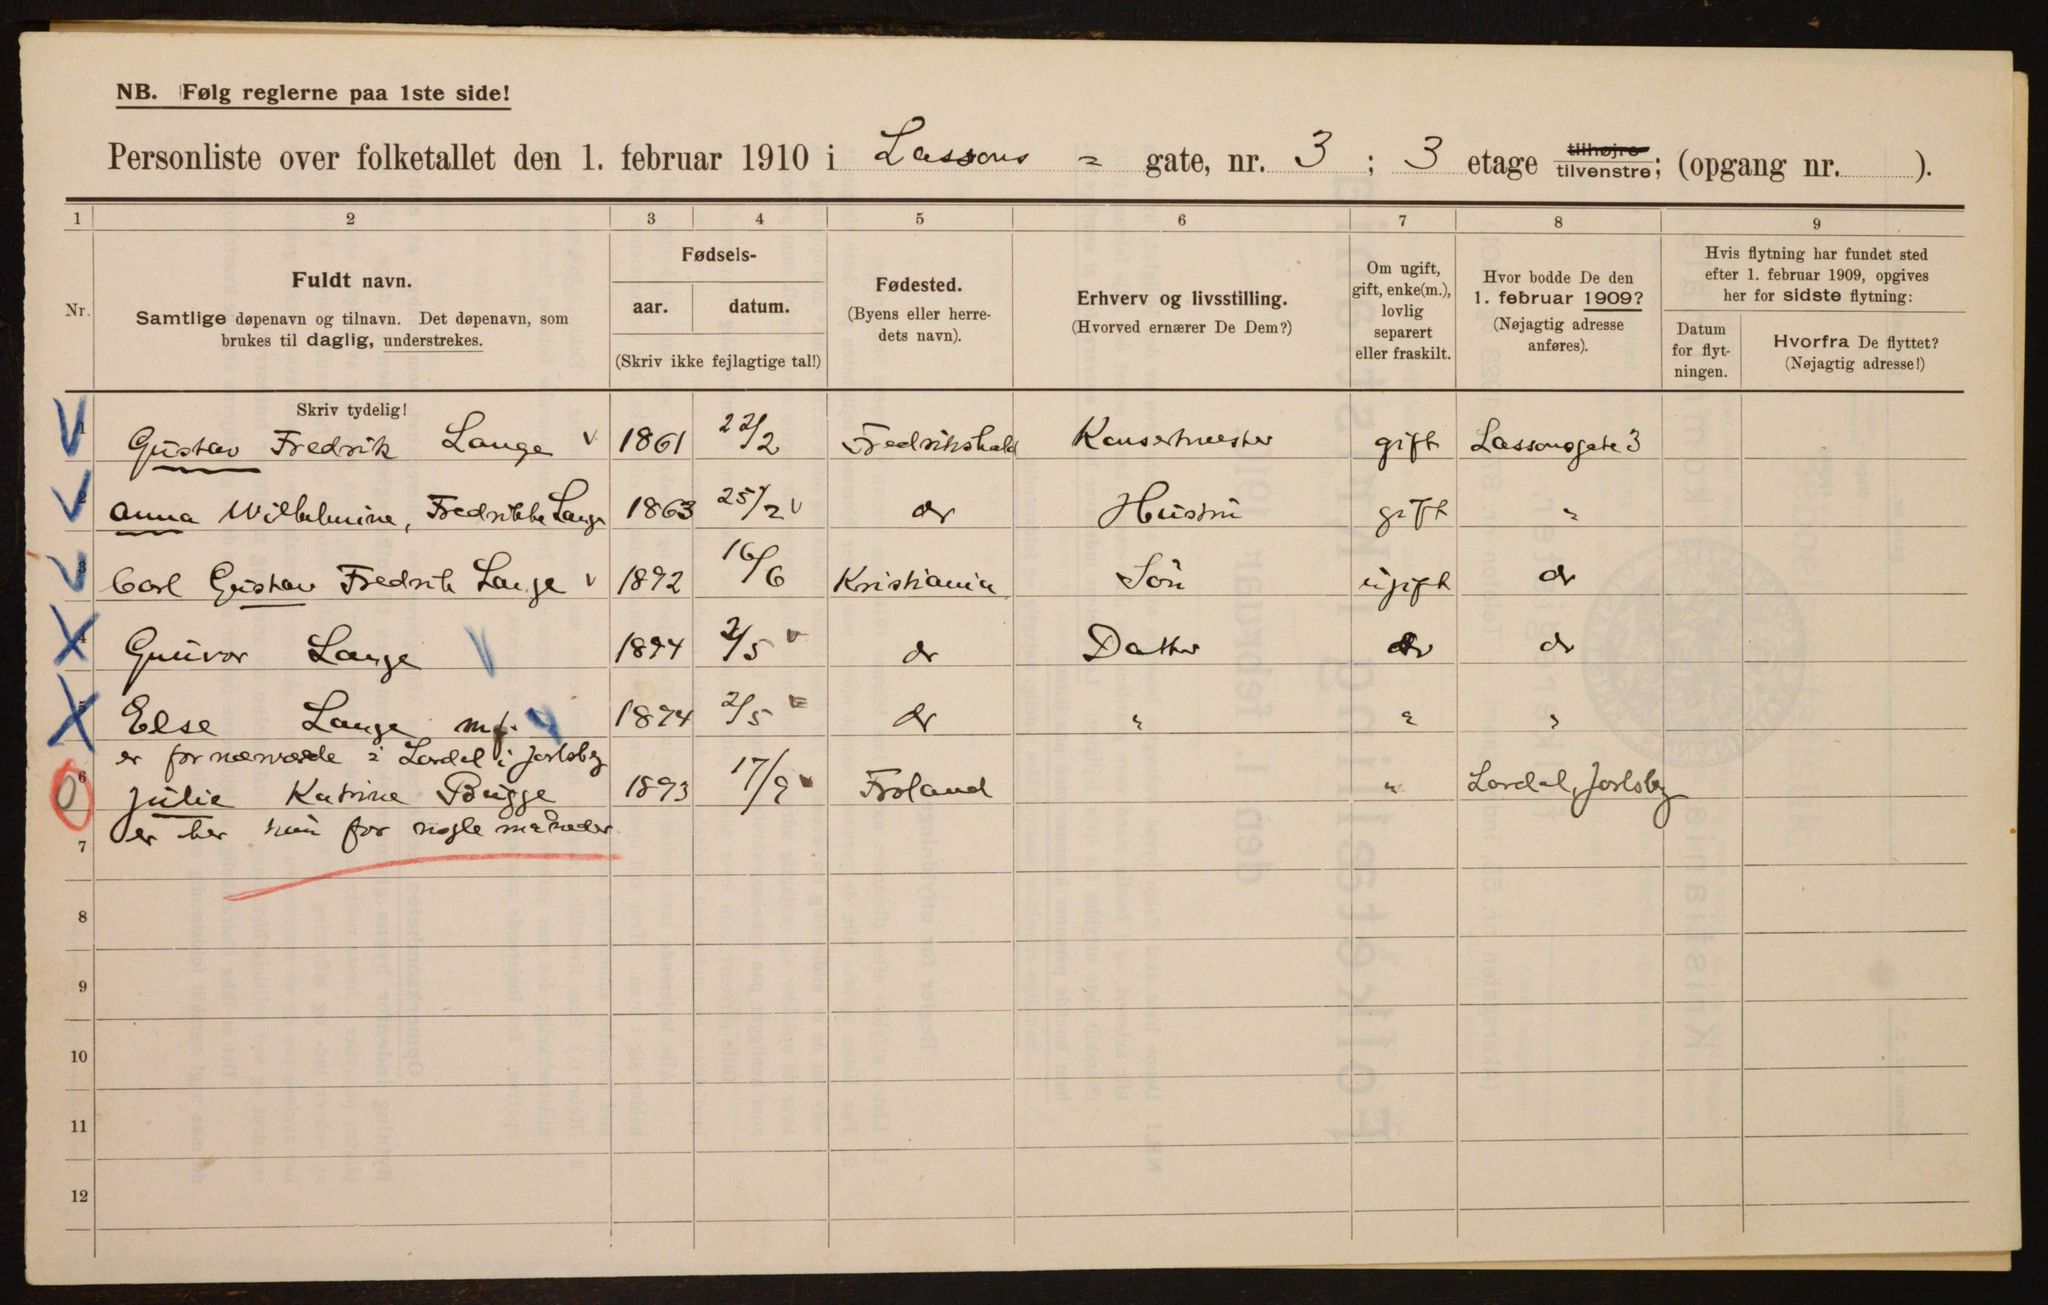 NB. Følg reglerne paa 1ste side!
Personliste over folketallet den 1. februar 1910 i Lassons = gate, nr. 3 ; 3 etage tilhøjre tilvenstre; (opgang nr. ).
1 2 3 4 5 6 7 8 9
Nr.
Fuldt navn.
Samtlige døpenavn og tilnavn. Det døpenavn, som
brukes til daglig, understrekes.
Fødsels-
aar. datum.
(Skriv ikke fejlagtige tal!)
Fødested.
(Byens eller herre-
dets navn).
Erhverv og livsstilling.
(Hvorved ernærer De Dem?)
Om ugift,
gift, enke(m.),
lovlig
separert
eller fraskilt.
Hvor bodde De den
1. februar 1909?
(Nøjagtig adresse
anføres).
Hvis flytning har fundet sted
efter 1. februar 1909, opgives
her for sidste flytning:
Datum
for flyt-
ningen.
Hvorfra De flyttet?
(Nøjagtig adresse!)
Skriv tydelig!
1 Gustav Fredrik Lange 1861 22/2 Fredrikshald Konsertmester gift Lassonsgate 3
2 Anna Wilhelmine, Fredrikke Lange 1863 25/2 do Hustru gift "
3 Carl Gustav Fredrik Lange 1892 16/6 Kristiania Sön ugift do
4 Gunvor Lange 1894 2/5 do Datter do do
5 Else Lange mf. 1894 2/5 do " " "
er for nærværende i Lardal i Jarlsberg
6 Julie Katrine Bugge 1893 17/9 Froland " Lardal, Jarlsberg
er her kun for nogle måneder
7
8
9
10
11
12